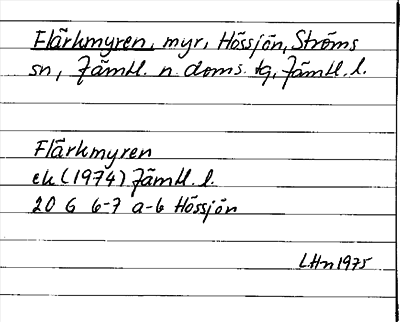 Flärkmyren, myr, Hössjön, Ströms
sn, Jämtl. n. doms. tg, Jämtl. l.
Flärkmyren
ek (1974) Jämtl. l.
20 G 6-7 a-b Hössjön
LHn 1975